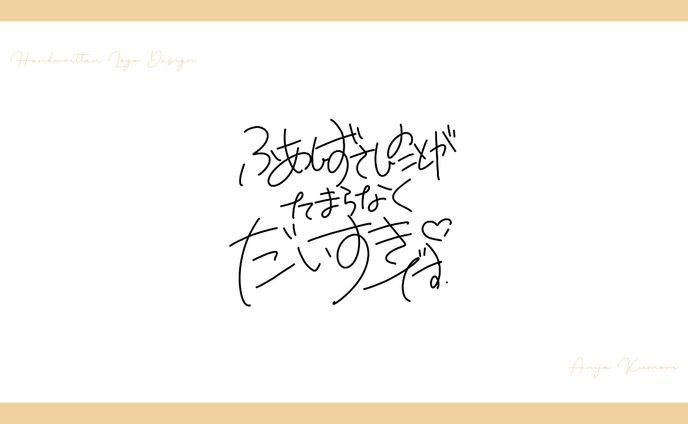 Handwritten Logo Design
のことが
たまらなく
だいすき♡
です.
Anya Kumori